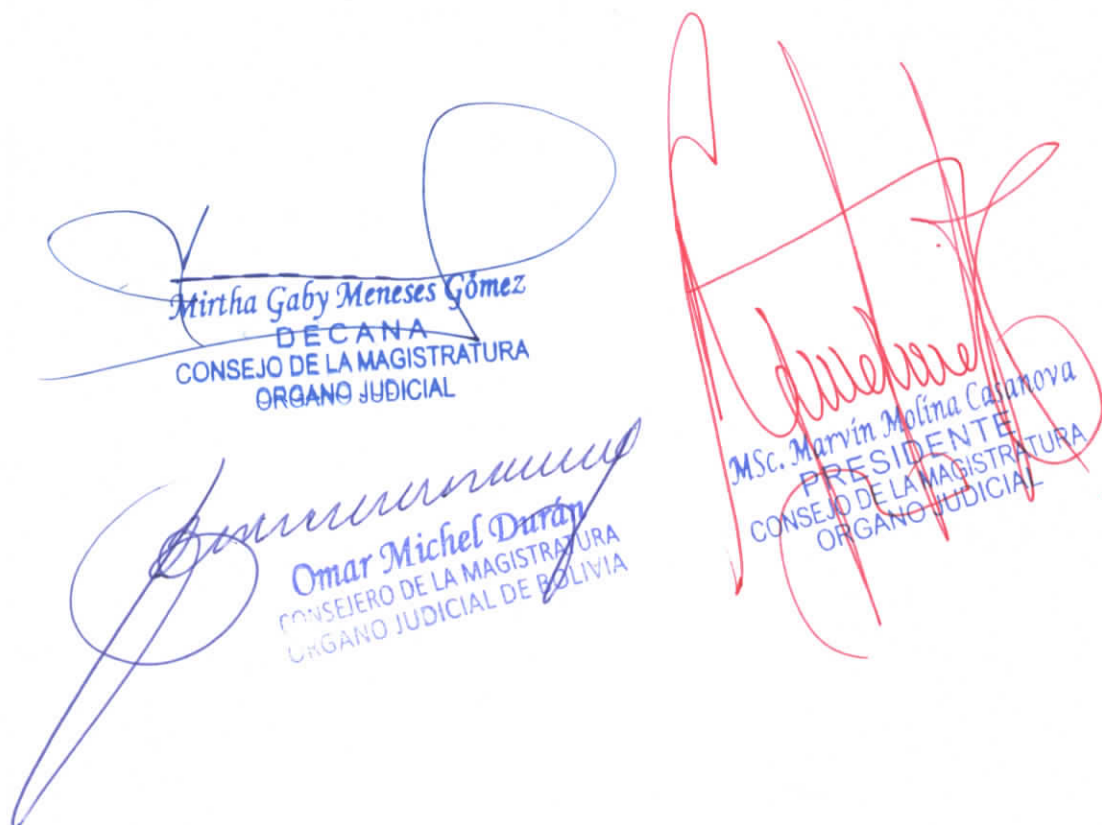 Mirtha Gaby Meneses Gómez
DECANA
CONSEJO DE LA MAGISTRATURA
ORGANO JUDICIAL
MSc. Marvin Molina Casanova
PRESIDENTE
CONSEJO DE LA MAGISTRATURA
ORGANO JUDICIAL
Omar Michel Durán
CONSEJERO DE LA MAGISTRATURA
ORGANO JUDICIAL DE BOLIVIA